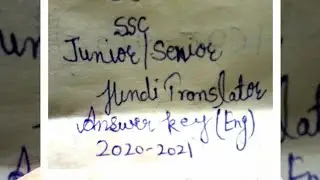 SSC
Junior/Senior
Hindi Translator
Answer key (Eng)
2020-2021